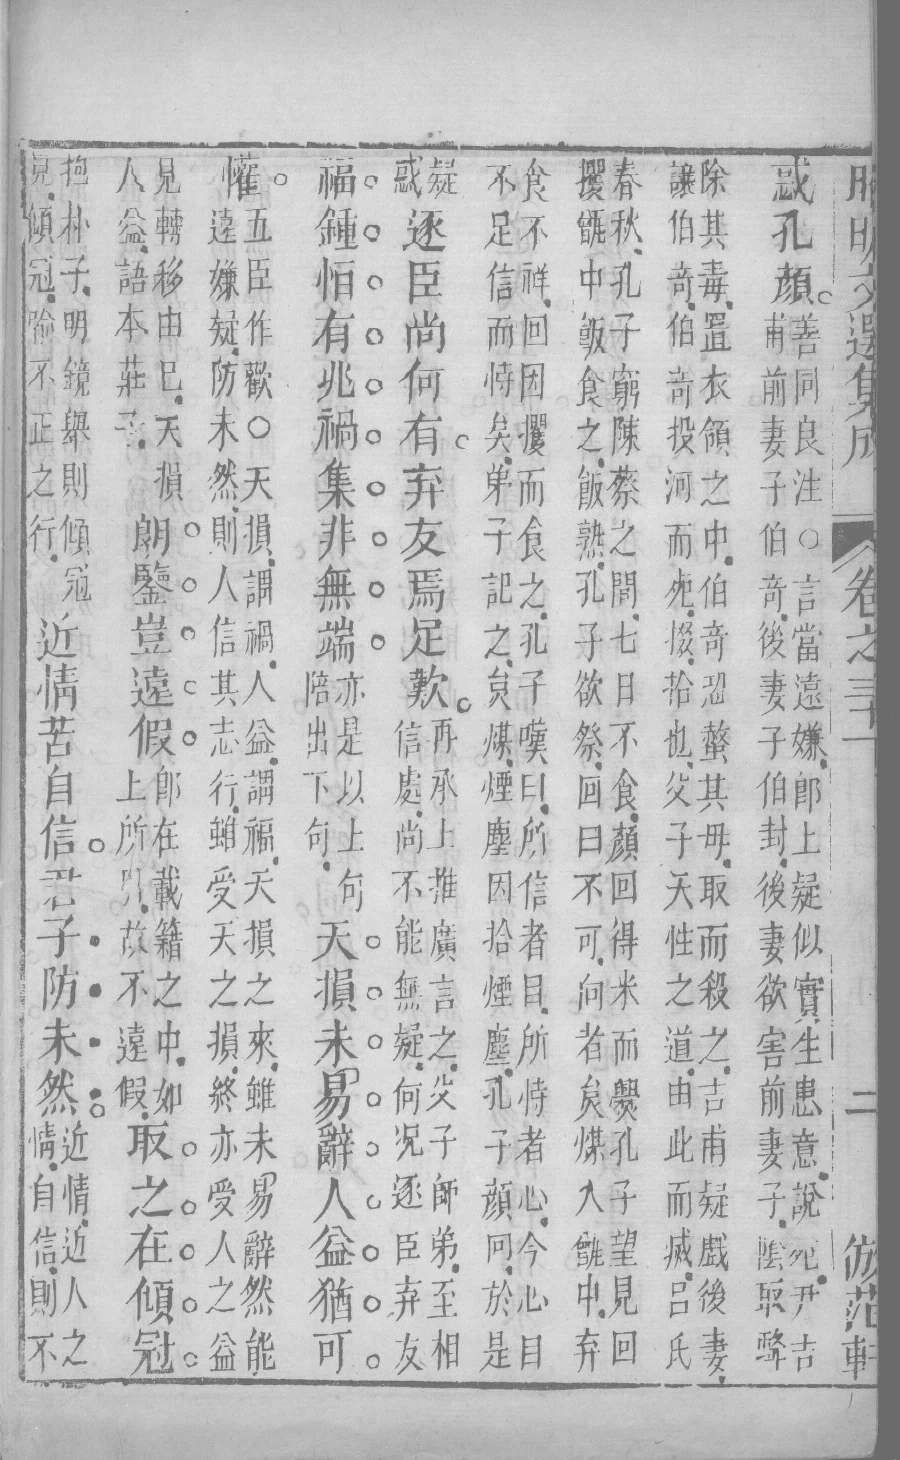 昭明文選集成 卷之三十一 二 倣范軒
惑孔顏善同良注○言當遠嫌郎上疑似實生患意說苑尹吉
甫前妻子伯奇後妻子伯封後妻欲害前妻子陰取蜂
除其毒置衣領之中伯奇恐螫其母取而殺之吉甫疑戲後妻
讓伯奇伯奇投河而死掇拾也父子天性之道由此而滅呂氏
春秋孔子窮陳蔡之間七日不食顏回得米而爨孔子望見回
攫甑中飯食之飯熟孔子欲祭回曰不可向者矣煤入甑中弃
食不祥回因攫而食之孔子嘆曰所信者目所恃者心今心目
不足信而恃矣弟子記之炱煤煙塵因拾煙塵孔子顏回於是
疑
惑逐臣尚何有弃友焉足歎再承上推廣言之父子師弟至相
信處尚不能無疑何况逐臣弃友
福鍾恒有兆禍集非無端亦是以上句
陪出下句天損未易辭人益猶可
懽五臣作歡○天損謂禍人益謂福天損之來雖未易辭然能
遠嫌疑防未然則人信其志行雖受天之損終亦受人之益
見轉移由巳天損
人益語本莊子朗鑒豈遠假郎在載籍之中如
上所引故不遠假取之在傾冠
抱朴子明鏡舉則傾冠
見傾冠喻不正之行近情苦自信君子防未然近情近人之
情自信則不